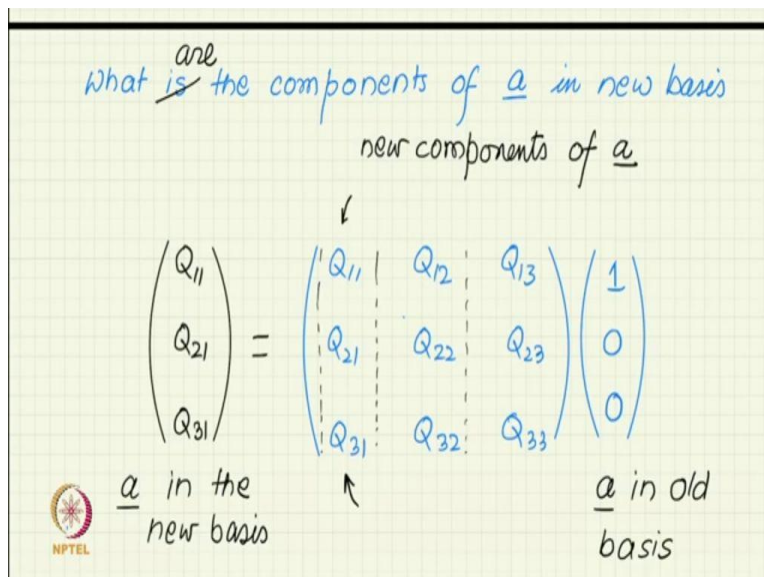 are
What is the components of a in new basis
new components of a
Q11 = Q11 Q12 Q13 1
Q21 Q21 Q22 Q23 0
Q31 Q31 Q32 Q33 0
a in the new basis
a in old basis
NPTEL